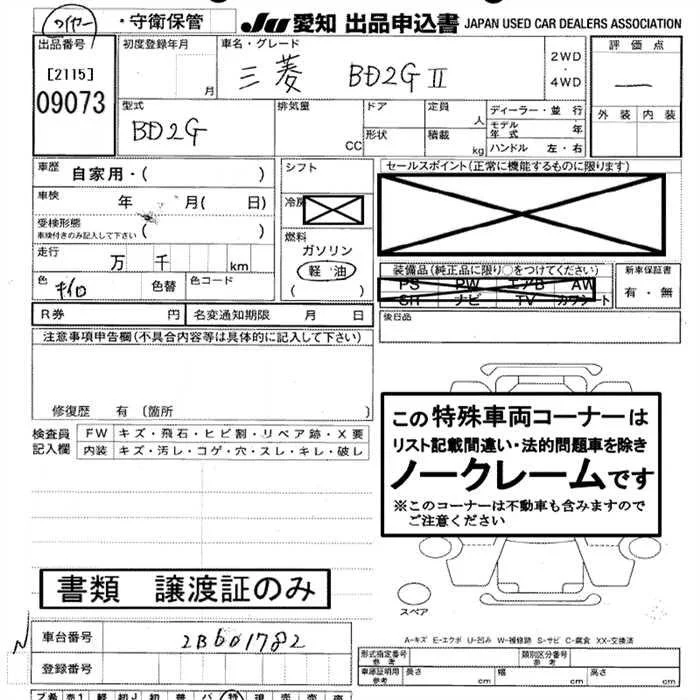 ワイヤー ・守衛保管 JU 愛知 出品申込書 JAPAN USED CAR DEALERS ASSOCIATION
出品番号 初度登録年月 月 車名・グレード 2WD ・ 4WD 評価点
[2115] 三菱 BD2G II
09073
外装 内装
型式 排気量 CC ドア 定員 人 ディーラー・並 行
BD2G 形状 積載 kg モデル年式 年
ハンドル 左・右
車歴 自家用・( ) シフト セールスポイント(正常に機能するものに限ります)
車検 年 月( 日) 冷房
受検形態 ( )
車検付きのみ記入して下さい
燃料
走行 万 千 km ガソリン
軽 油
( )
装備品(純正品に限り○をつけてください) 新車保証書
PS PW エアB AW 有・無
SH ナビ TV カワシート
色 キイロ 色替 色コード
後日品
R券 円 名変通知期限 月 日
注意事項申告欄(不具合内容等は具体的に記入して下さい)
修復歴 有 (箇所 )
検査員 FW キズ・飛石・ヒビ割・リペア跡・X要
記入欄 内装 キズ・汚レ・コゲ・穴・スレ・キレ・破レ
この特殊車両コーナーは
リスト記載間違い・法的問題車を除き
ノークレームです
※このコーナーは不動車も含みますので
ご注意ください
書類 譲渡証のみ
スペア
A-キズ E-エクボ U-凹み W-補修跡 S-サビ C-腐食 XX-交換済
車台番号 2B601782
登録番号
形式指定番号 参考 類別区分番号 参考
車庫証明用 参考 長さ cm 幅 cm 高さ cm